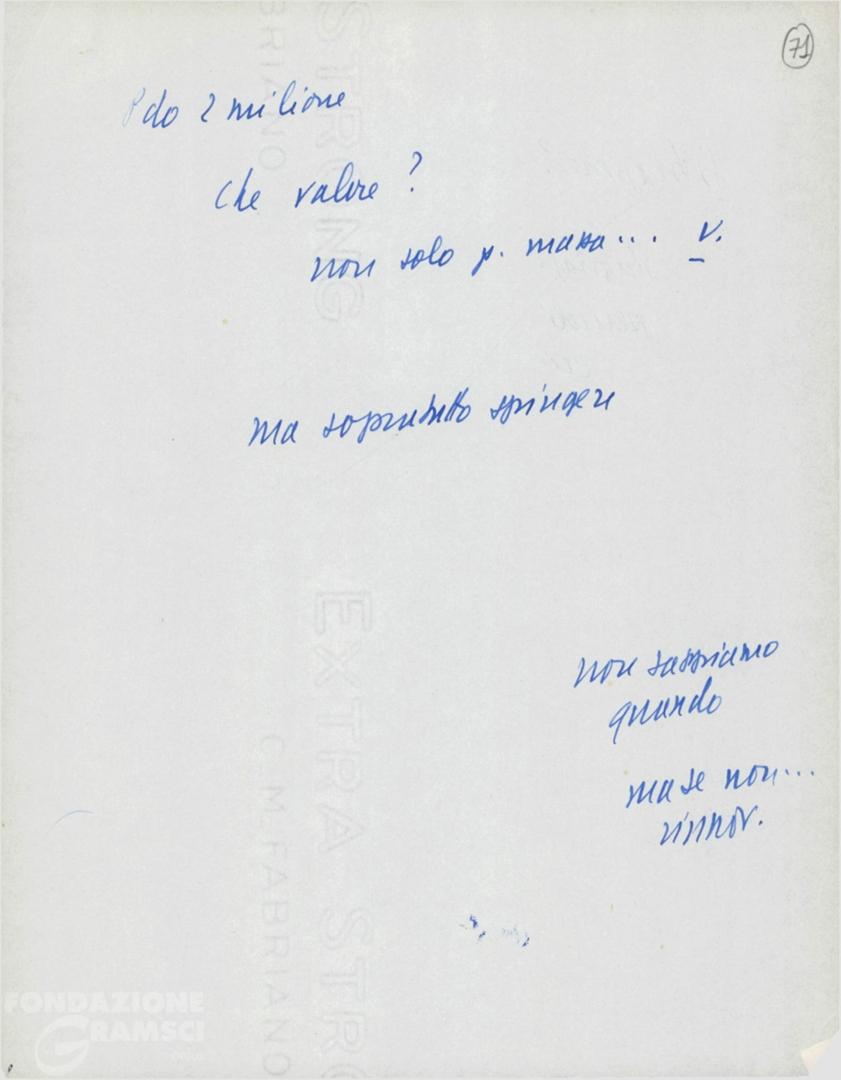 71
Pdo 2 milione
Che valore?
non solo p. massa... v.
ma sopratutto spingere
non sappiamo
quando
ma se non...
rinnov.
EXTRA STRONG
C.M.FABRIANO
FONDAZIONE
GRAMSCI